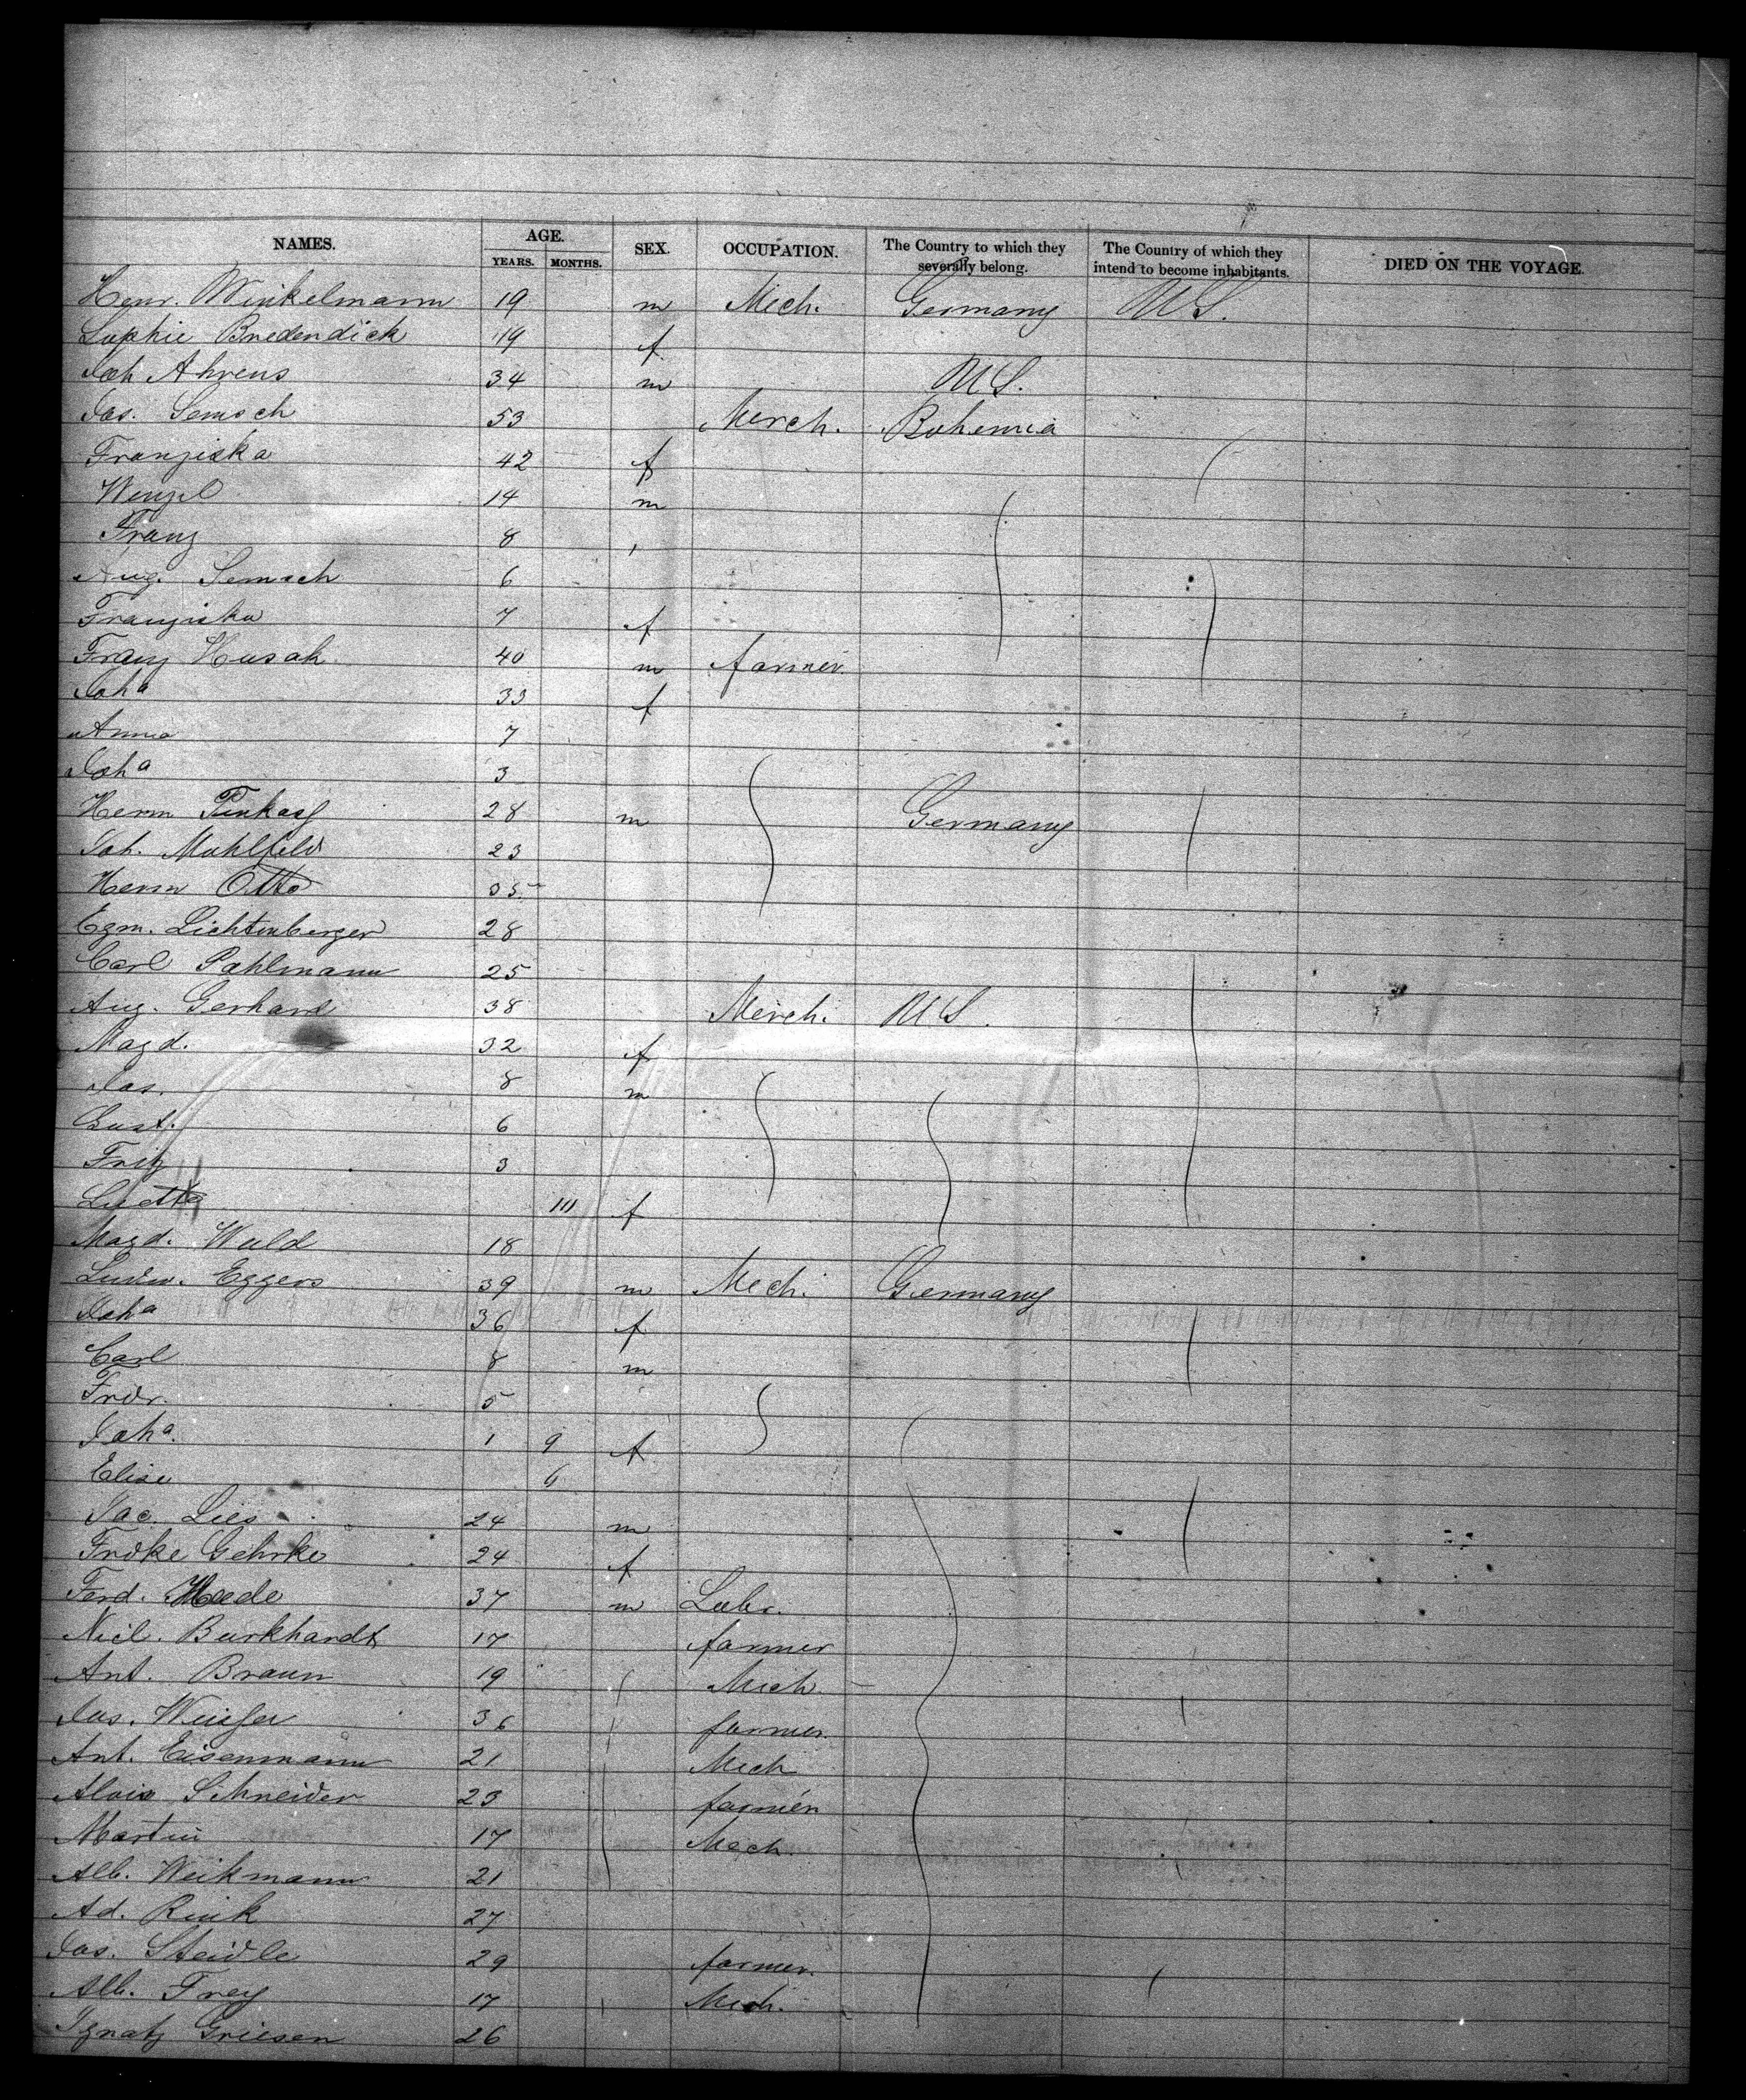 NAMES. AGE. SEX. OCCUPATION. The Country to which they severally belong. The Country of which they intend to become inhabitants. DIED ON THE VOYAGE
YEARS. MONTHS.
Henr. Winkelmann 19 m Mech. Germany U S.
Sophie Bredendick 19 f
Joh Ahrens 34 m U S.
Jos. Semsch 53 Merch. Bohemia
Franziska 42 f
Wenzel 14 m
Franz 8
Aug. Semsch 6
Franziska 7 f
Franz Husak 40 m farmer.
Joha 33 f
Anna 7
Joha 3
Herm Pinkass 28 m Germany
Joh. Mahlfeld 23
Herm Otto 35
Egm. Lichtenberger 28
Carl Pahlmann 25
Aug. Gerhard 38 Merch. U S.
Magd. 32 f
Jos. 8 m
Gust. 6
Fritz 3
10 f
Magd. Wald 18
Ludw. Eggers 39 m Mech. Germany
Joha 36 f
Carl 8 m
Frdr. 5
Joha. 1 9 f
Elise 6
Jac. Lies 24 m
Frdke Gehrke 24 f
Ferd. 37 m Labr.
Nicl. Burkhardt 17 farmer
Ant. Braun 19 Mech.
Jos. Weisser 36 farmer.
Ant. Eisenmann 21 Mech
Alois Schneider 23 farmer
Martin 17 Mech.
Alb. Weikmann 21
Ad. Rink 27
Jos. Steidle 29 farmer.
Alb. Frey 17 Mech.
Ignatz Griesen 26